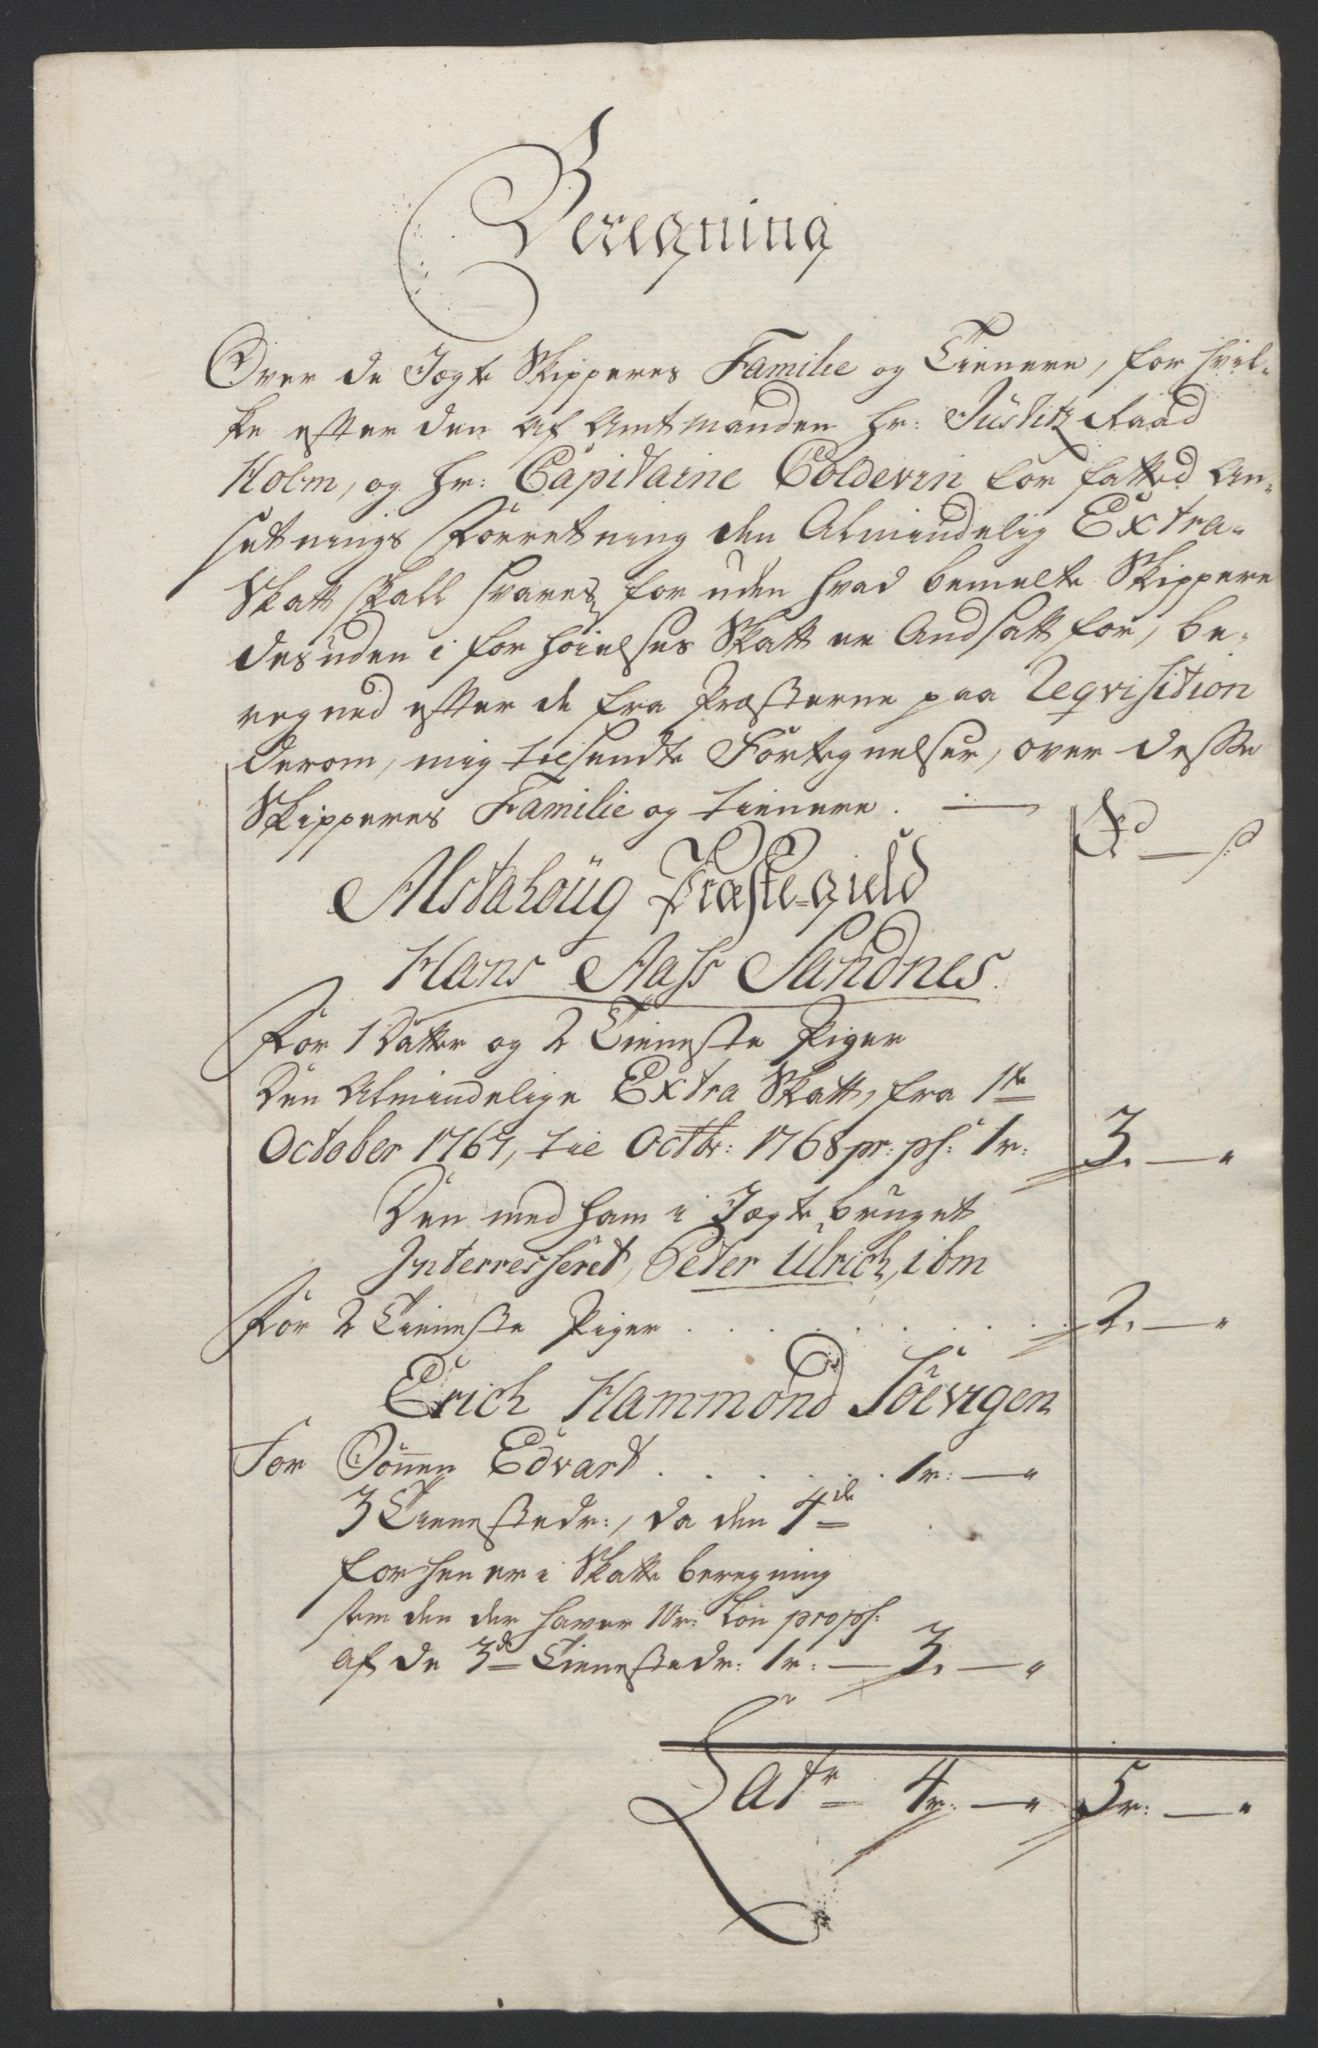 Beregning
Over de Jægte Skipperes Familie og Tienere, for hvil-
ke efter den af Amtmanden Hr: Justitz Raad
Holm, og Hr: Capitaine Coldevin forfatted An-
sætnings Forretning den Almindelig Extra-
Skatt skall svares, foruden hvad bemelte Skippere
desuden i forhøielses Skatt er Andsatt for, be-
regned efter de fra Præsterne paa Reqvisition
derom, mig tilsendte Fortegnelser, over desse
Skipperes Familie og tienere.
Rd — s
Alstahoüg Præste-gield
Hans Aass Sandnes.
For 1 Datter og 2 Tieneste Piger
Den Almindelige Extra Skatt, fra 1te
October 1767, til Octbr: 1768 pr: ps: 1r: 3. — "
Den med ham i Jægte bruget
Interresseret, Peter Ulrich, ibm
For 2 Tieneste Piger . . . . . . . . 2. — "
Erich Hammond Töevigen
For Sönnen Edvart . . . . . . 1r: — "
3 Tienestedr:, da den 4de
forhen er i Skatte beregning
som den der haver 10r: Løn pro ps:
af de 3de Tienestedr: 1r: — 3. — "
Latr 4r: — " 5r: — "